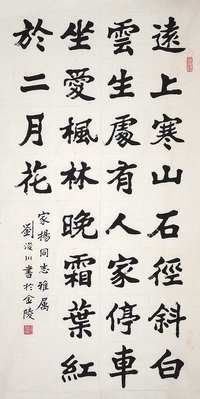 遠上寒山石徑斜白
雲生處有人家停車
坐愛楓林晚霜葉紅
於二月花
家揚同志雅属
劉浚川書於金陵